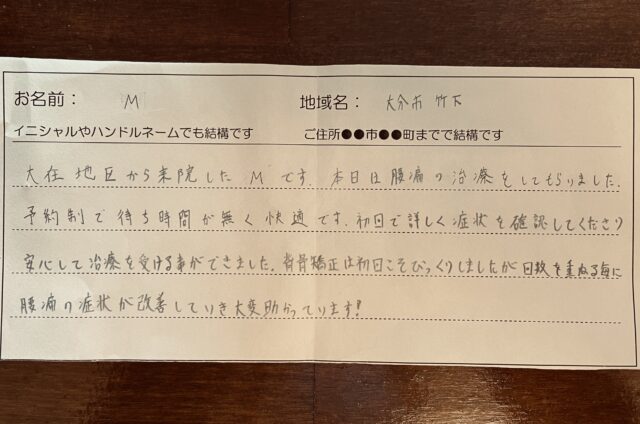 お名前： M 地域名： 大分市 竹下
イニシャルやハンドルネームでも結構です ご住所●●市●●町までで結構です
大在地区から来院したMです。本日は腰痛の治療をしてもらいました。
予約制で待ち時間が無く快適です。初回で詳しく症状を確認してくださり
安心して治療を受ける事ができました。背骨矯正は初回こそびっくりしましたが回数を重ねる毎に
腰痛の症状が改善していき大変助かっています!